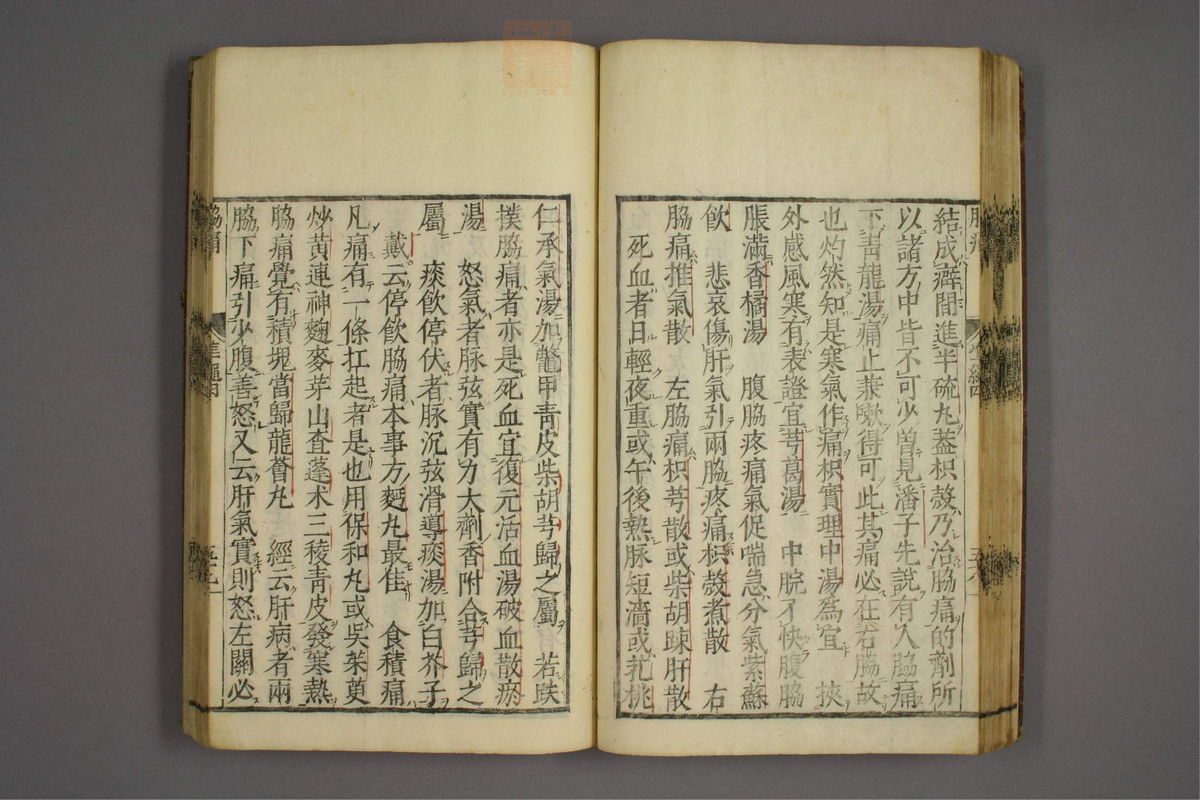 結成癖間進半硫丸蓋枳殼乃治脇痛的劑所
以諸方中皆不可少曽見潘子先說有人脇痛
下青龍湯痛止兼嗽得可此其痛必在右脇故
也灼然知是寒氣作痛枳實理中湯爲宜　挾
外感風寒有表證宜芎葛湯　中脘不快腹脇
脹滿香橘湯　腹脇疼痛氣促喘急分氣紫蘇
飲　悲哀傷肝氣引兩脇疼痛枳殼煮散　右
脇痛推氣散　左脇痛枳芎散或柴胡踈肝散
死血者日輕夜重或午後熱脉短濇或芤桃
仁承氣湯加鼈甲青皮柴胡芎歸之屬　若跌
撲脇痛者亦是死血宜復元活血湯破血散瘀
湯　怒氣者脉弦實有力大劑香附合芎歸之
屬　痰飲停伏者脉沉弦滑導痰湯加白芥子
戴云停飲脇痛本事方麪丸最佳　食積痛
凡痛有一條扛起者是也用保和丸或吳茱萸
炒黄連神麴麥芽山査蓬术三稜青皮發寒熱
脇痛覺有積塊當歸龍薈丸　經云肝病者兩
脇下痛引少腹善怒又云肝氣實則怒左關必
脇痛